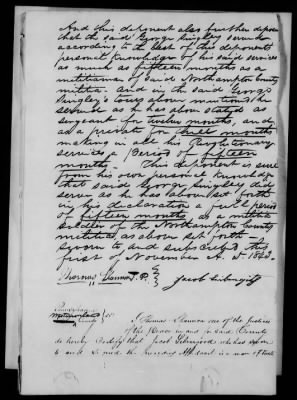 And this deponent also further deposes
that the said George Lingley served
according to the best of this deponents
personal knowledge of his said services
as much as fifteen months as a
militiaman of said Northampton County
militia. and in the said George
Lingley's tours above mentioned he
served as he has above stated as
sergeant for twelve months, and
as a private for three months
making in all his Revolutionary
services a Period of fifteen
months. This deponent is sure
from his own personal knowledge
that said George Lingley did
serve as he has above set forth
in his declaration a full period
of fifteen months, as a militia
soldier of the Northampton County
militia as above set forth
Sworn to and subscribed this
first of November A.D. 1833.
Thomas J.P.
Jacob
Pennsylvania
County ss
I Thomas one of the Justices
of the Peace in and for said County
do hereby Certify that Jacob who has sworn
to and signed the preceding Affidavit is a man of truth